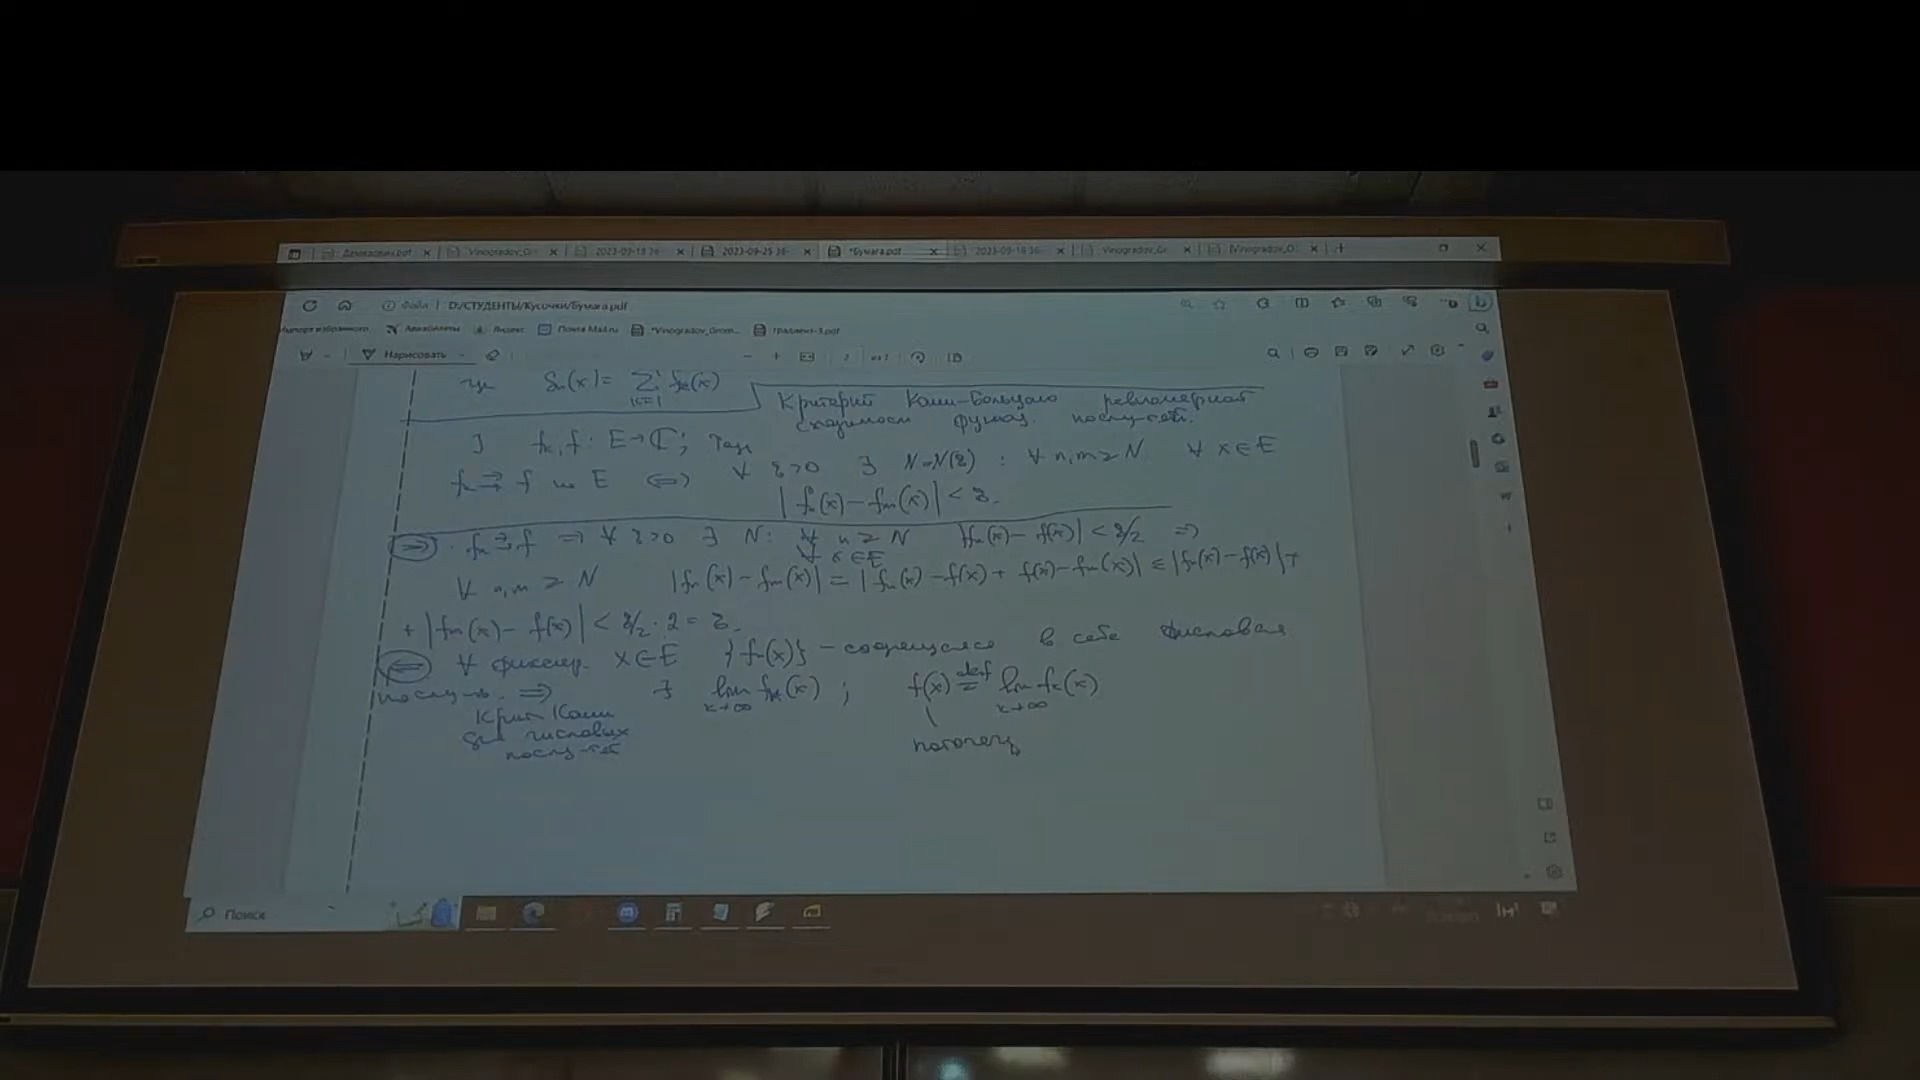 Демидович.pdf Vinogradov_Gr 2023-09-18 36- 2023-09-25 36- *Бумага.pdf 2023-09-18 36- Vinogradov_Gr (Vinogradov_O
Файл D:/СТУДЕНТЫ/Кусочки/Бумага.pdf
Импорт избранного Авиабилеты Яндекс Почта Mail.ru *Vinogradov_Gmm... Градиент-3.pdf
Нарисовать
где Sₙ(x) = ∑ₖ₌₁ fₖ(x)
Критерий Коши-Больцано равномерной
сходимости функц. послед-сти.
∃ fₖ, f : E → ℂ; Тогда
fₖ ⇉ f на E ⇔ ∀ ε>0 ∃ N=N(ε) : ∀ n,m ≥ N ∀ x∈E
|fₙ(x) − fₘ(x)| < ε.
⇒ . fₖ ⇉ f ⇒ ∀ ε>0 ∃ N: ∀ n ≥ N |fₙ(x) − f(x)| < ε/2 ⇒
∀ x∈E
∀ n,m ≥ N |fₙ(x) − fₘ(x)| = |fₙ(x) − f(x) + f(x) − fₘ(x)| ≤ |fₙ(x) − f(x)| +
+ |fₘ(x) − f(x)| < ε/2 · 2 = ε.
⇐ ∀ фиксир. x∈E {fₙ(x)} − сходящаяся в себе числовая
послед-ть. ⇒ ∃ lim fₖ(x) ; f(x) def= lim fₖ(x)
k→∞ k→∞
Крит Коши
для числовых
послед-тей
поточечн
Поиск